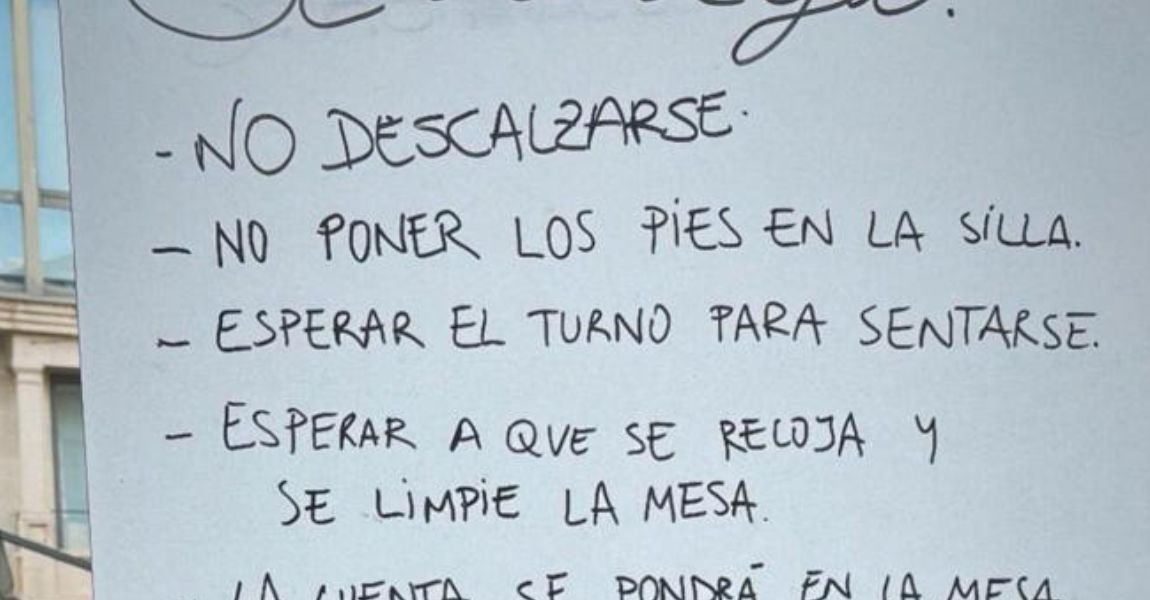 - NO DESCALZARSE.
- NO PONER LOS PIES EN LA SILLA.
- ESPERAR EL TURNO PARA SENTARSE.
- ESPERAR A QUE SE RECOJA Y
SE LIMPIE LA MESA.
- LA CUENTA SE PONDRÁ EN LA MESA